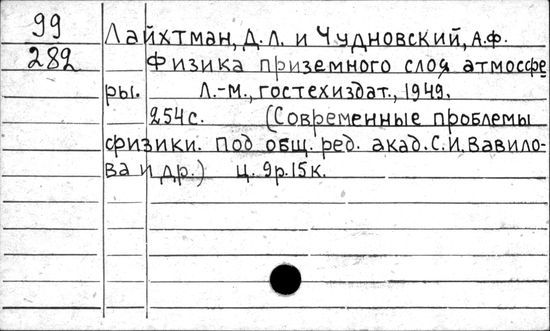 99
282
Лайхтман, Д.Л. и Чудновский, А.Ф.
Физика приземного слоя атмосфе
ры. Л.-М., гостехиздат., 1949.
254 с. (Современные проблемы
физики. Под общ. ред. акад. С.И. Вавило-
ва и др.) ц. 9р. 15к.